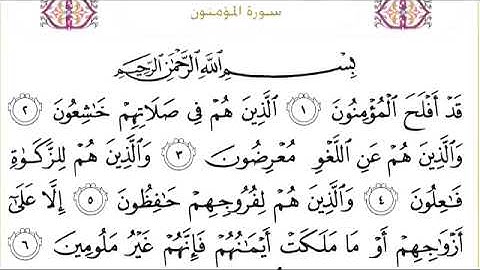 سورة المؤمنون
بِسْمِ اللَّهِ الرَّحْمَٰنِ الرَّحِيمِ
قَدْ أَفْلَحَ الْمُؤْمِنُونَ ١ الَّذِينَ هُمْ فِي صَلَاتِهِمْ خَاشِعُونَ ٢
وَالَّذِينَ هُمْ عَنِ اللَّغْوِ مُعْرِضُونَ ٣ وَالَّذِينَ هُمْ لِلزَّكَوٰةِ
فَاعِلُونَ ٤ وَالَّذِينَ هُمْ لِفُرُوجِهِمْ حَافِظُونَ ٥ إِلَّا عَلَىٰٓ
أَزْوَاجِهِمْ أَوْ مَا مَلَكَتْ أَيْمَانُهُمْ فَإِنَّهُمْ غَيْرُ مَلُومِينَ ٦